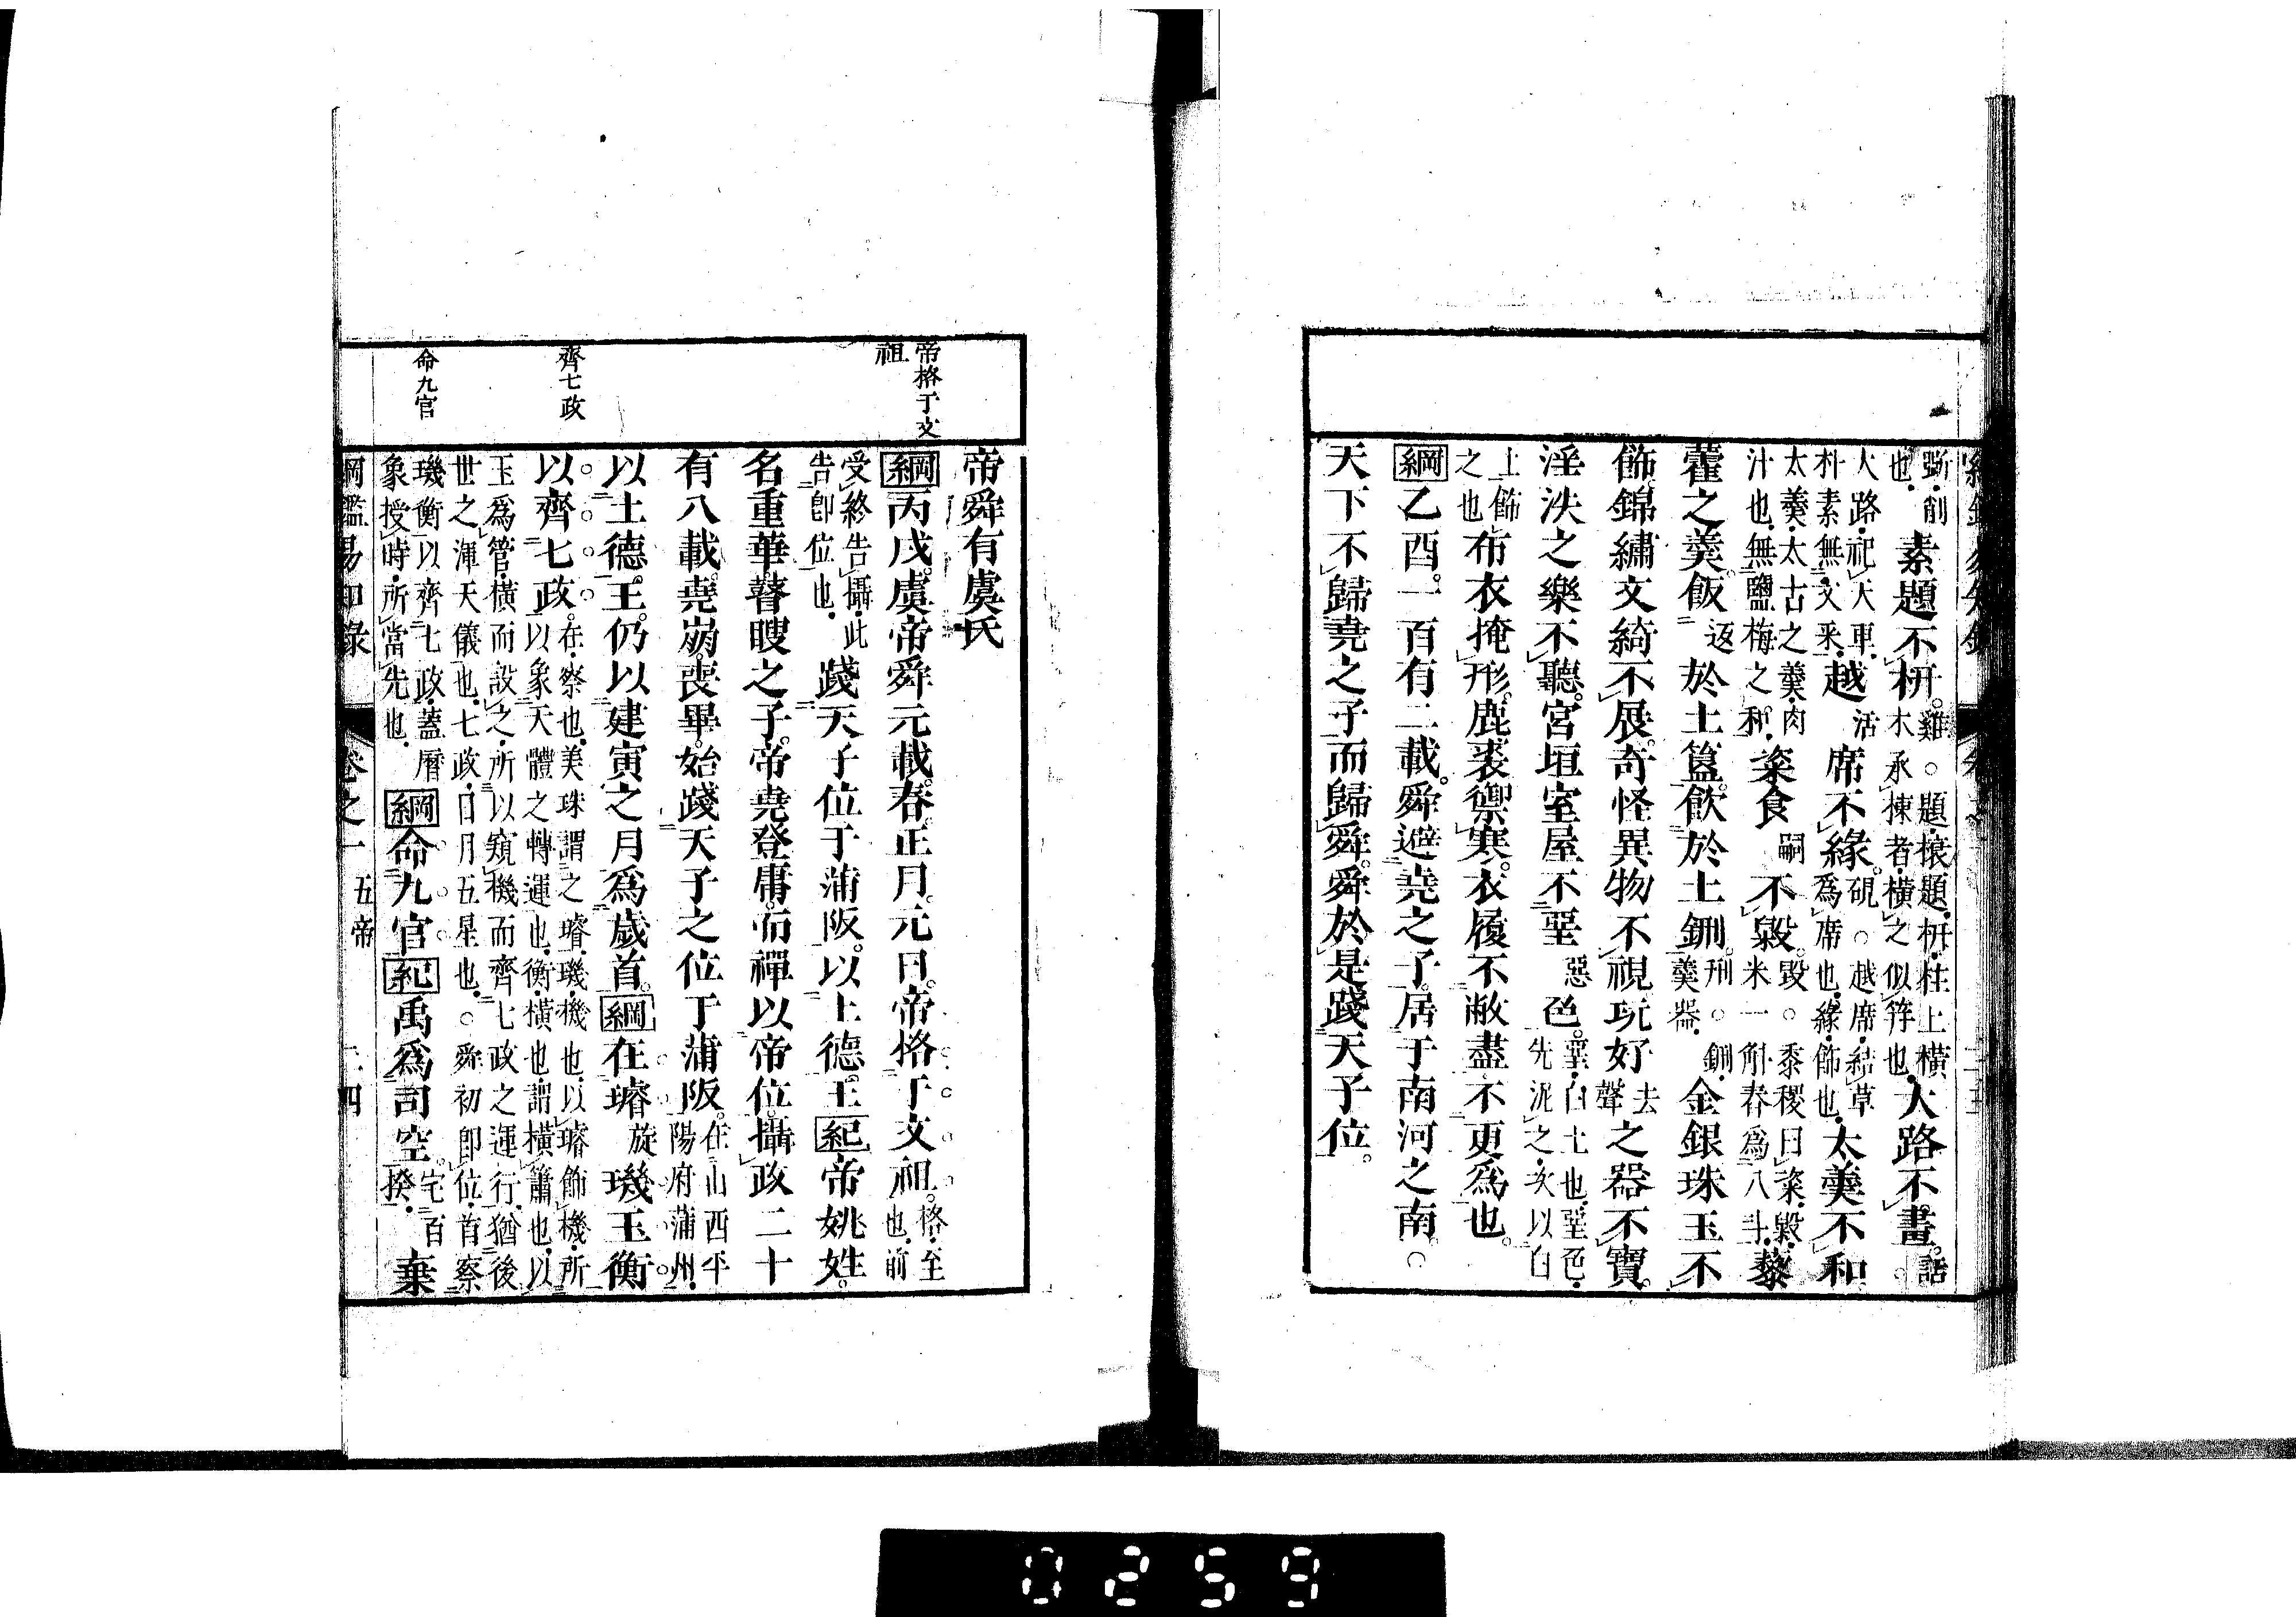 斲,削也,素題不枅。雞。○題,榱題,枅,柱上橫木承棟者,橫之似笄也,大路不畫。話。○
大路,祀天車,朴素無文釆,越活席不緣。硯。○越席,結草爲席也,緣,飾也,太羹不和。
太羹,太古之羹,肉汁也,無鹽梅之和,粢食嗣不毇。毀。○黍稷曰粢,毇,米一斛舂爲八斗,藜
藿之羹。飯返於土簋。飮於土鉶。刑。○鉶,羹器,金銀珠玉不
飾。錦繡文綺不展。奇怪異物不視。玩好去聲之器不寶。
淫泆之樂不聽。宮垣室屋不堊惡色。堊,白土也,堊色,先泥之,次以白
上飾之也布衣掩形。鹿裘禦寒。衣履不敝盡不更爲也。
綱乙酉。一百有二載。舜避堯之子。居于南河之南。○
天下不歸堯之子而歸舜。舜於是踐天子位。
帝舜有虞氏
帝格于文祖
綱丙戌。虞帝舜元載。春。正月。元日。帝格于文祖。格,至也,前
受終告攝,此告卽位也,踐天子位于蒲阪。以土德王。紀帝姚姓。
名重華。瞽瞍之子。帝堯登庸。而禪以帝位。攝政二十
有八載。堯崩。喪畢。始踐天子之位于蒲阪。在山西平陽府蒲州,
以土德王。仍以建寅之月爲歲首。綱在璿旋璣玉衡
齊七政
以齊七政。在,察也,美珠謂之璿,璣,機也,以璿飾機,所以象天體之轉運也,衡,橫也,謂橫簫也,以
玉爲管,橫而設之,所以窺機而齊七政之運行,猶後世之渾天儀也,七政,日月五星也,○舜初卽位,首察
命九官
璣衡以齊七政,蓋曆象授時,所當先也,綱命九官。紀禹爲司空。宅百揆,棄
綱鑑易知錄 卷之一 五帝 十四
0259